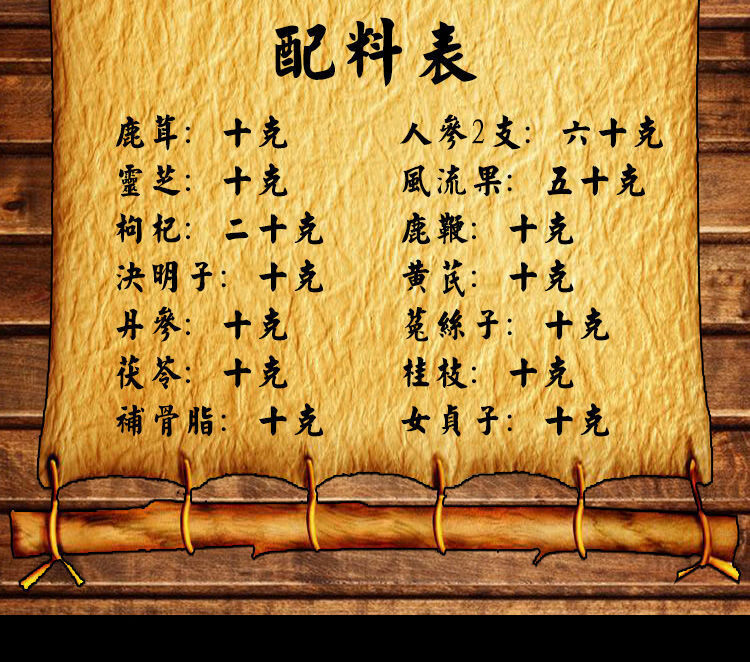 配料表
鹿茸: 十克 人參2支: 六十克
靈芝: 十克 風流果: 五十克
枸杞: 二十克 鹿鞭: 十克
決明子: 十克 黃芪: 十克
丹參: 十克 菟絲子: 十克
茯苓: 十克 桂枝: 十克
補骨脂: 十克 女貞子: 十克